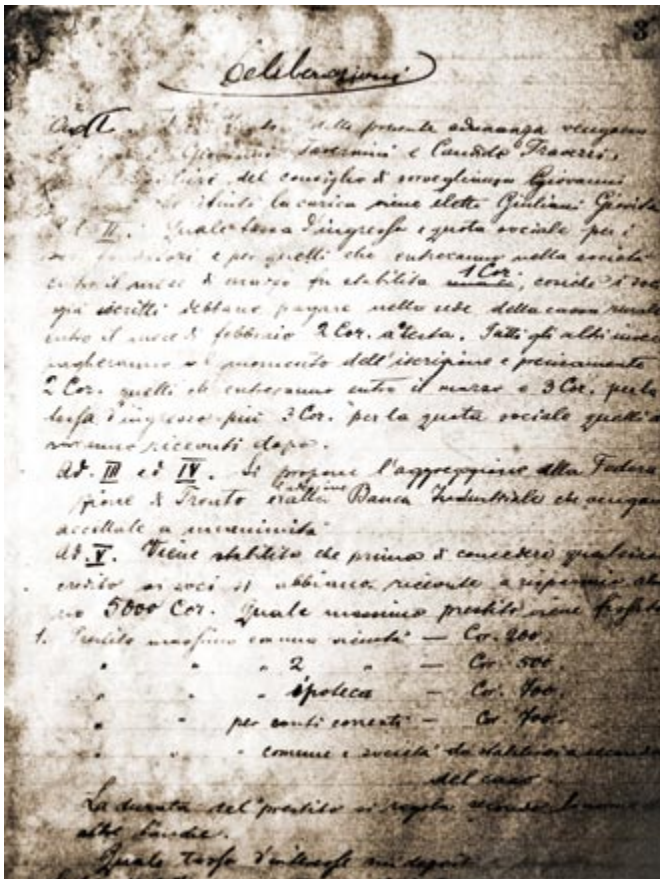 3
Deliberazioni
Ad I della presente adunanza vengono
Giovanni Tavernini e Candido Traversi.
del consiglio di sorveglianza Giovanni
la carica viene eletto Giuliani
II. Quale tassa d'ingresso e quota sociale per i
e per quelli che entreranno nella società
entro il mese di marzo fu stabilita 1 Cor., cosichè i
già iscritti debbano pagare nella sede della cassa rurale
entro il mese di febbraio 2 Cor. a testa. Tutti gli altri
pagheranno al momento dell'iscrizione e precisamente
2 Cor. quelli che entreranno entro il marzo e 3 Cor. per la
tassa d'ingresso più 3 Cor. per la quota sociale quelli
dopo.
Ad. III ed IV. Si propone l'aggregazione alla Federa
zione di Trento alla Banca Industriale che vengon
accettate a unanimità
Ad. V. Viene stabilito che prima di concedere qualsiasi
credito ai soci si abbiano a risparmio
5000 Cor. Quale massimo prestito viene fissato
1. Prestito massimo con una sicurtà — Cor. 200.
" " " 2 " — Cor. 500.
" " " ipoteca — Cor. 700.
" " per conti correnti — Cor. 700.
" " " comune e società da stabilirsi a seconda
del caso
La durata del prestito si regola secondo
altre bande.
Quale tassa d'interesse sui depositi